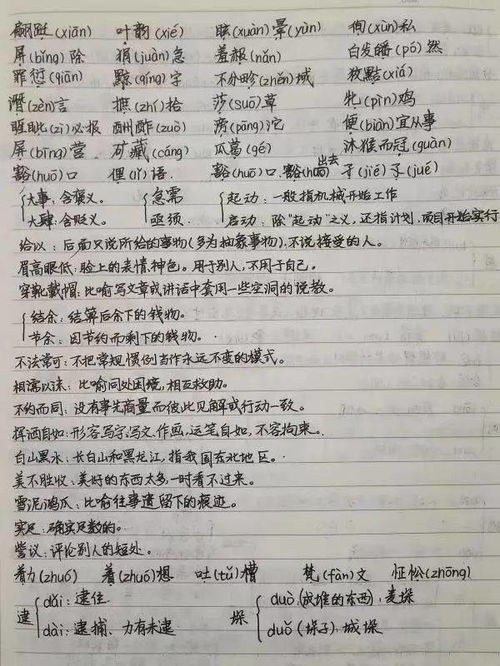 翩跹(xiān) 叶韵(xié) 眩(xuàn)晕(yùn) 徇(xùn)私
屏(bǐng)除 狷(juàn)急 羞赧(nǎn) 白发皤(pó)然
罪愆(qiān) 黥(qíng)字 不分畛(zhěn)域 狡黠(xiá)
谮(zèn)言 摭(zhí)拾 莎(suō)草 牝(pìn)鸡
睚眦(zì)必报 酬酢(zuò) 滂(pāng)沱 便(biàn)宜从事
屏(bīng)营 矿藏(cáng) 瓜葛(gé) 沐猴而冠(guàn)
豁(huō)口 俚(lǐ)语 豁(huō)口 豁(huō)出去 孑(jié)孓(jué)
大事:含褒义。 急需 起动:一般指机械开始工作
大肆:含贬义。 亟须 启动:除"起动"之义,还指计划、项目开始实行
给以:后面只说所给的事物(多为抽象事物),不说接受的人。
眉高眼低:脸上的表情、神色。用于别人,不用于自己。
穿靴戴帽:比喻写文章或讲话中套用一些空洞的说教。
结余:结算后余下的钱物。
节余:因节约而剩下的钱物。
不法常可:不把常规惯例当作永远不变的模式。
相濡以沫:比喻同处困境,相互救助。
不约而同:没有事先商量而彼此见解或行动一致。
挥洒自如:形容写字、写文、作画,运笔自如,不容拘束。
白山黑水:长白山和黑龙江,指我国东北地区。
美不胜收:美好的东西太多,一时看不过来。
雪泥鸿爪:比喻往事遗留下的痕迹。
实足:确实足数的。
訾议:评论别人的短处。
着力(zhuó) 着(zhuó)想 吐(tǔ)槽 梵(fàn)文 怔忪(zhōng)
逮 dǎi:逮住 垛 duò(成堆的东西):麦垛
dài:逮捕、力有未逮 duǒ(垛子):城垛